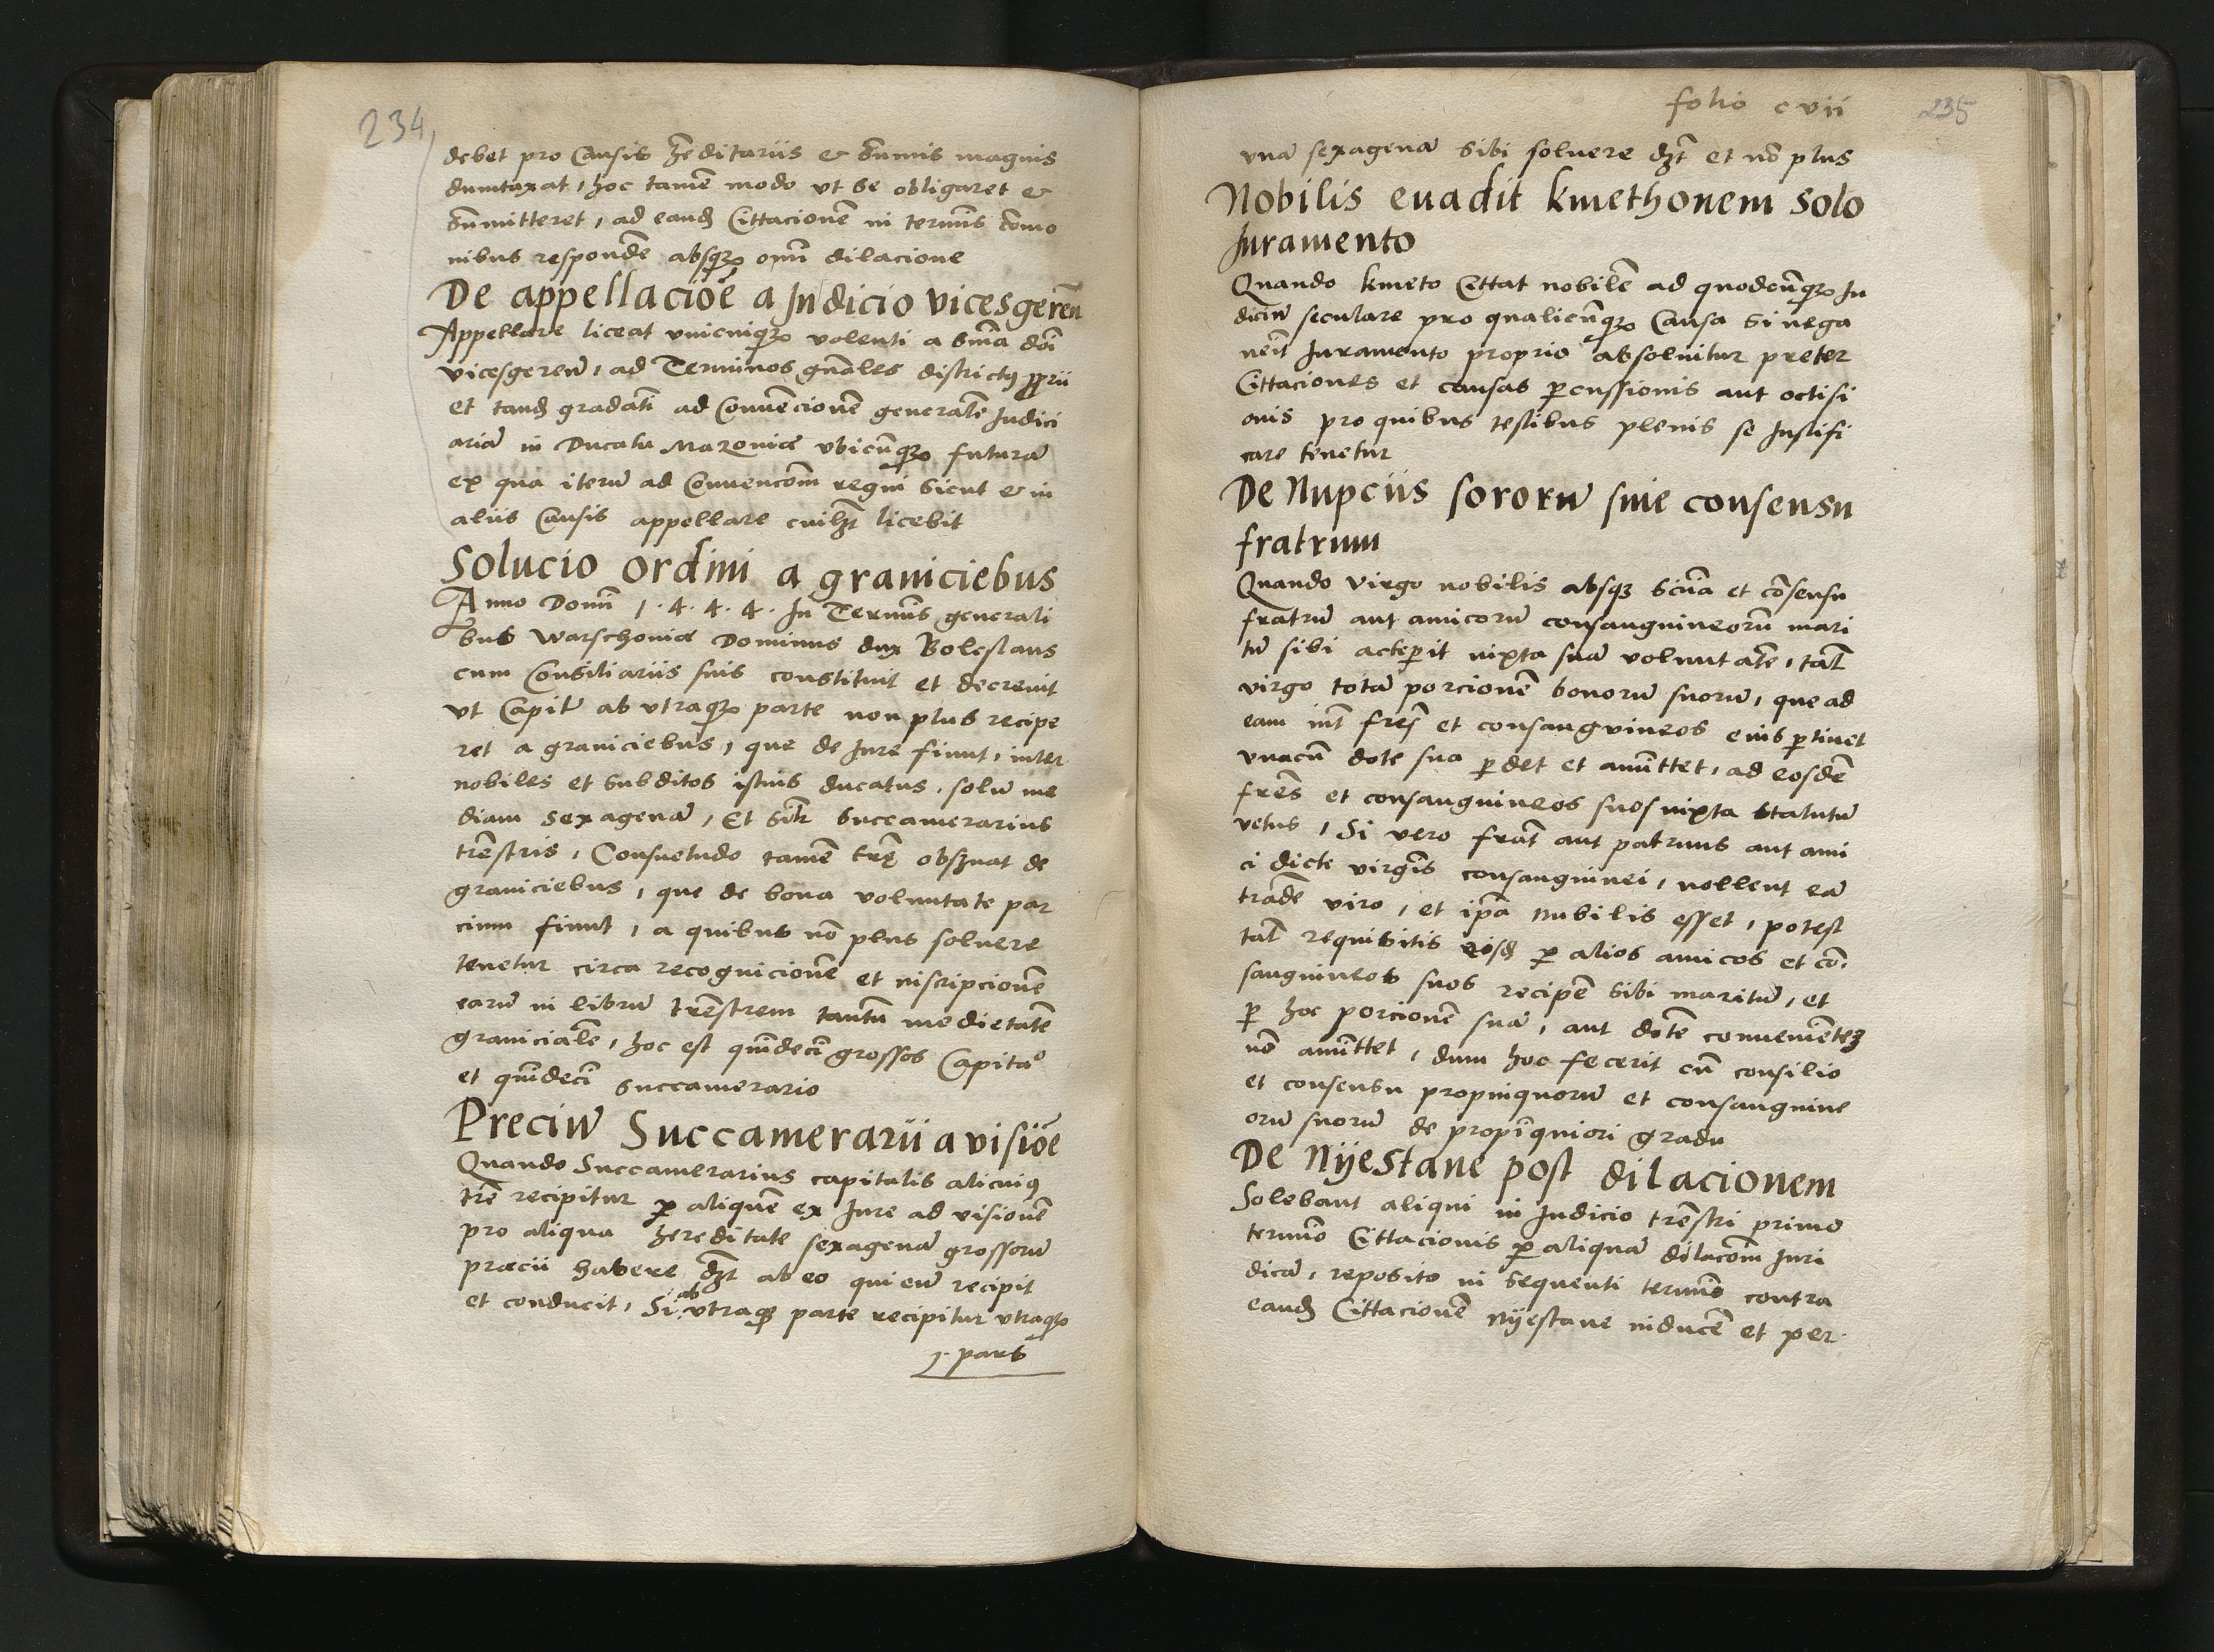 234
debet pro Causis hereditariis & summis magnis
dumtaxat, hoc tamē modo ut se obligaret &
summitteret, ad eandē Cittacionē in terminis como
nibus respondē absq̄ omī dilacione
De appellacioē a Judicio vicesgerēn
Appellare liceat unicuiq̄ volenti a snīa dni
vicesgerenī, ad Terminos gnāles districtꝰ pprii
et tandē gradatī ad Convēcionē generalē Judici
ariā in Ducatu Mazoniæ ubicūq̄ futurā
ex qua iterū ad Convencōm regni sicut & in
aliis Causis appellare cuilꝫt licebit
Solucio ordini a graniciebus
Anno Domī 1.4.4.4. In Termīs generali
bus Warschoniæ Dominus dux Boleslaus
cum Consiliariis suis constituit et decrevit
ut Capitꝰ ab utraq̄ parte non plus recipe
ret a graniciebus, que de Jure fiunt, inter
nobiles et subditos istius ducatus, solū me
diam sexagenā, Et silr succamerarius
trēstris, Consuetudo tamē trē obsꝫvat de
graniciebus, que de bona voluntate par
cium fiunt, a quibus nō plus solvere
tenetur circa recognicionē et inscripcionē
earū in librū trēstrem tantū medietatē
granicialē, hoc est quīdeci grossos Capitaº
et quīdeci succamerario
Preciū Succamerarii a visiōe
Quando Succamerarius capitalis alicuiꝰ
trē recipitur ꝑ aliquē ex Jure ad visionē
pro aliqua hereditate sexagenā grossorū
præcii habere dꝫt ab eo qui eū recipit
et conducit, Si ab utraq̄ parte recipitur utraq̄
1. pars
folio cvii 235
unā sexagenā sibi solvere dꝫt et nō plus
Nobilis evadit kmethonem solo
Juramento
Quando kmeto Cittat nobilē ad quodcūq̄ Ju
diciū seculare pro qualicūq̄ Causa si nega
verit Juramento proprio absolvitur preter
Cittaciones et causas ꝑcussionis aut occisi
onis pro quibus testibus plenis se Justifi
care tenetur
De Nupciis sororū sine consensu
fratrum
Quando virgo nobilis absqꝫ scīa et cōsensu
fratrū aut amicorū consanguineorū mari
tū sibi acceꝑit iuxta suā voluntatē, talꝭ
virgo totā porcionē bonorū suorū, que ad
eam int̄ frēs et consanguineos eius ꝑtinet
unacū dote sua ꝑdet et amittet, ad eosdē
frēs et consanguineos suos iuxta statutū
vetus, Si vero frat̄ aut patruus aut ami
ci dicte virgīs consanguinei, nollent eā
tradē viro, et ipā nubilis esset, potest
talꝭ requisitis eisdē ꝑ alios amicos et cō
sanguineos suos recipē sibi maritū, et
ꝑ hoc porcionē suā, aut dotē convenientēꝫ
nō amittet, dum hoc fecerit cū consilio
et consensu propinquorū et consanguine
orū suorū de propīquiori gradu
De Nyestane post dilacionem
Solebant aliqui in Judicio trēstri primo
termīo Cittacionis ꝑ aliquā dilacōm Juri
dicā, reposito in sequenti termīo contra
eandē Cittacionē Nyestane inducē et per